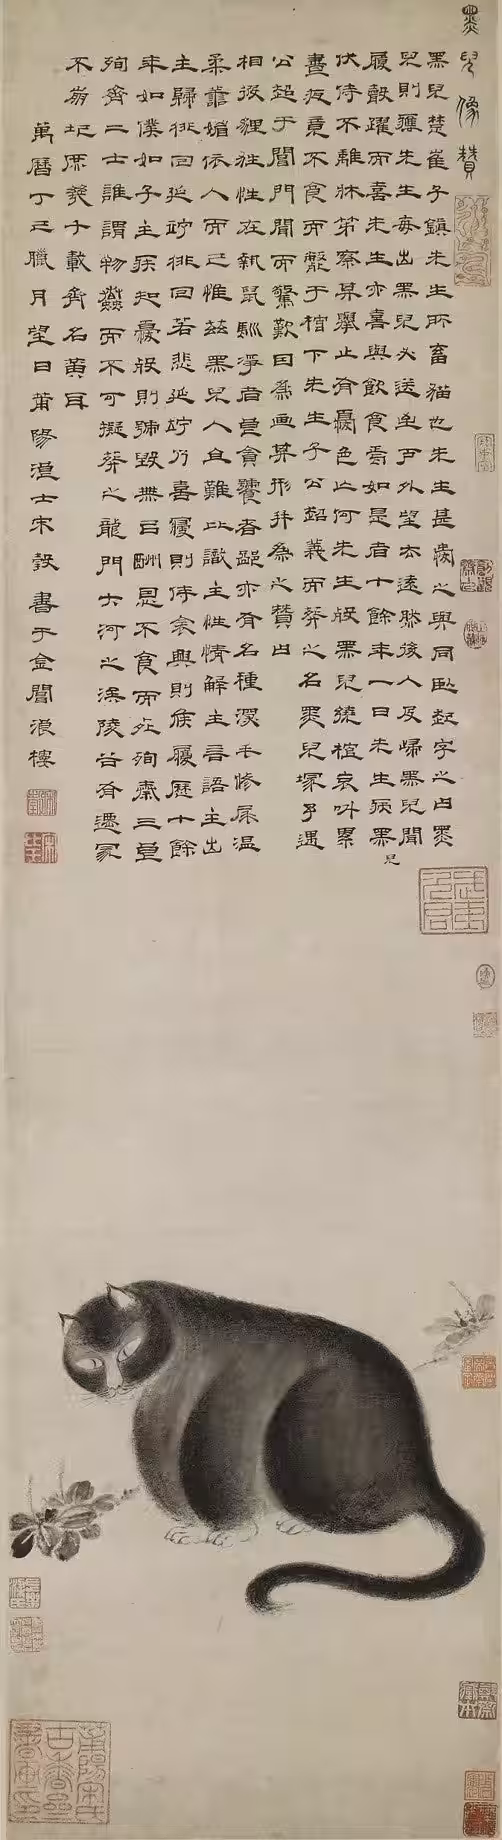 黑兒像贊
黑兒楚崔子鎮先生所畜猫也先生甚憐之與同臥起字之曰黑
兒則應先生每出黑兒必送至戶外望去遠然後入及歸黑兒聞
履聲躍而喜先生亦喜與飲食焉如是者十餘年一日先生病黑兒
伏侍不離牀笫察其舉止有憂色亡何先生歿黑兒繞棺哀叫累
晝夜竟不食而斃于棺下先生子公超義而葬之名黑兒冢予遇
公超于閶門聞而驚歎因為画其形并為之贊曰
相彼狸性在執鼠馴淨者貪饕者亦有名種深毛修尾溫
柔雝媚依人而已惟茲黑兒人且難比識主性情解主言語主出
主歸徘徊延竚徘徊若悲延竚乃喜寢則侍衾興則侯履歷十餘
年如僕如子主疾知憂歿則號毀無以酬恩不食而死殉三
殉齊二士誰謂物蠢而不可擬葬之龍門大河之涘陵谷有遷冢
不崩圮庶幾千載齊名黃耳
萬曆丁巳臘月望日莆陽漁士宋瑴書于金閶浪樓